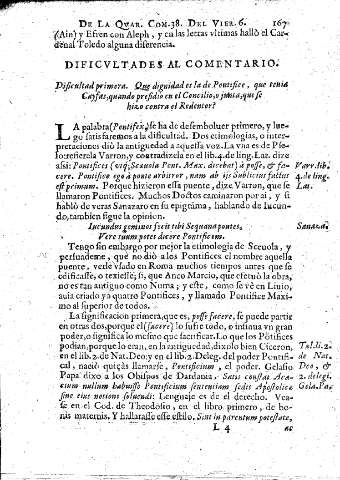 DE LA QVAR. COM. 38. DEL VIER. 6. 167
(Ain) y Efren con Aleph, y en las letras vltimas halló el Car-
denal Toledo alguna diferencia.
DIFICVLTADES AL COMENTARIO.
Dificultad primera. Que dignidad es la de Pontifice, que tenia
Cayfas, quando presidio en el Concilio, o junta, que se
hizo contra el Redentor?
LA palabra (Pontifex) se ha de desemboluer primero, y lue-
go satisfaremos a la dificultad. Dos etimologias, o inter-
pretaciones dió la antiguedad a aquessa voz. La vna es de
refierela Varron, y contradizela en el lib. 4. de ling. Lat. dize
assi: Pontifices (vt Sceuola Pont. Max. dicebat) à posse, & fa-
cere. Pontifice ego à ponte arbitror, nam ab ijs Sublicius factus
est primum. Porque hizieron essa puente, dize Varron, que se
llamaron Pontifices. Muchos Doctos caminaron por aì, y si
habló de veras Sanazaro en su epigrama, hablando de Iucun-
do, tambien sigue la opinion.
Iucundus geminos fecit tibi Sequana pontes,
Vere tuum potes dicere Pontificem.
Tengo sin embargo por mejor la etimologia de Sceuola, y
persuademe, que no dió a los Pontifices el nombre aquella
puente, verle vsado en Roma muchos tiempos antes que se
edificasse, o texiesse; si, que Anco Marcio, que efectuò la obra,
no es tan antiguo como Numa; y este, como se vè en Liuio,
auia criado ya quatro Pontifices, y llamado Pontifice Maxi-
mo al superior de todos.
La significacion primera, que es, posse facere, se puede partir
en otras dos, porque el (facere) lo sufre todo, o insinua vn gran
poder, o significa lo mesmo que sacrificar. Lo que los Pótifices
podian, porque lo eran, en la antiguedad, dixolo bien Ciceron,
en el lib. 2. de Nat. Deo: y en el lib. 2. Deleg. del poder Pontifi-
cal, nació quiçàs llamarse, Pontificium, el poder. Gelasio
Papa dixo a los Obispos de Dardania. Satis constat Aca-
cium nullum habuisse Pontificium sententiam sedis Apostolice
sine eius notione soluendi: Lenguaje es de el derecho. Vea-
se en el Cod. de Theodosio, en el libro primero, de bo-
nis maternis. Y hallarasse esse estilo. Sint in parentum potestate,
L 4 ac
Varr. lib.
4. de ling.
Lat.
Sanaza.
Tul. li. 2.
de Nat.
Deo, &
2. de legi.
Gela. Pa.